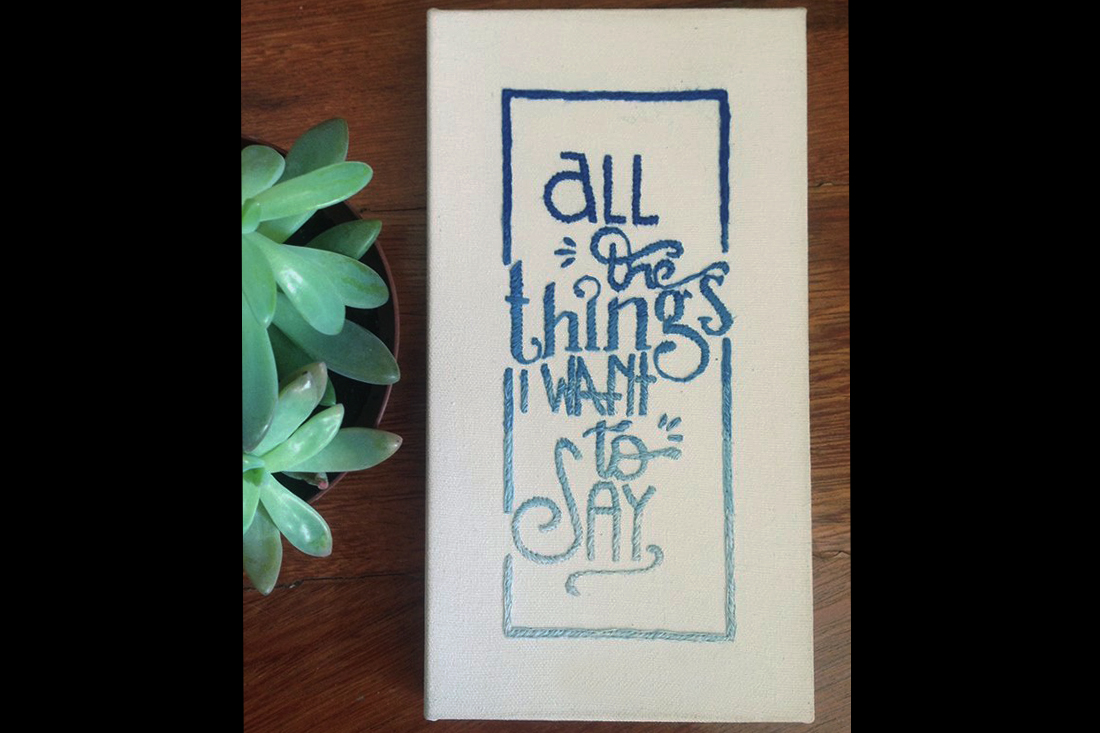 all
the
things
I WANT
to
SAY